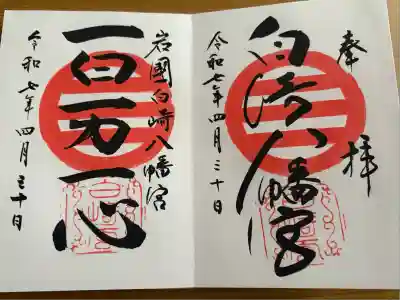 奉拝
白崎八幡宮
令和七年四月三十日
岩國白崎八幡宮
一日一万一心
令和七年四月三十日